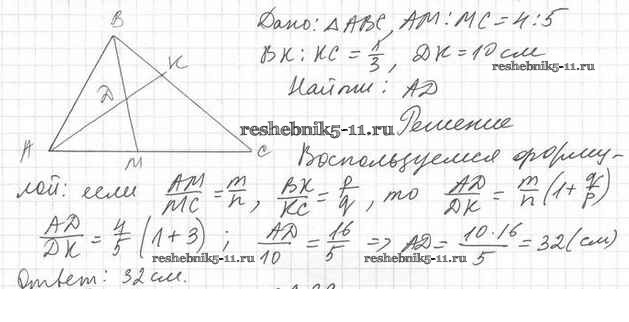 Дано: △ABC, AM : MC = 4 : 5
BK : KC = 1/3, DK = 10 см
reshebnik5-11.ru
Найти: AD
reshebnik5-11.ru
Решение
B
K
D
A
M
C
Воспользуемся форму-
лой: если AM/MC = m/n, BK/KC = p/q, то AD/DK = m/n (1 + q/p)
AD/DK = 4/5 (1 + 3); AD/10 = 16/5 => AD = 10·16/5 = 32 (см)
reshebnik5-11.ru reshebnik5-11.ru
Ответ: 32 см.